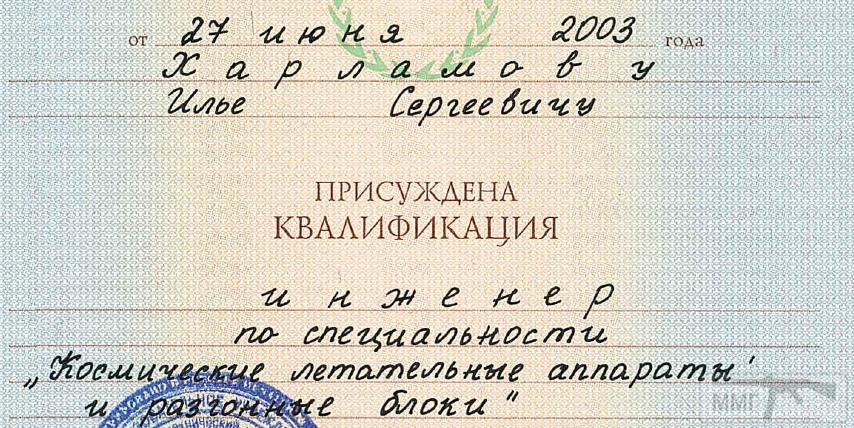 от 27 июня 2003 года
Харламову
Илье Сергеевичу
ПРИСУЖДЕНА
КВАЛИФИКАЦИЯ
инженер
по специальности
„Космические летательные аппараты
и разгонные блоки"
ММГ